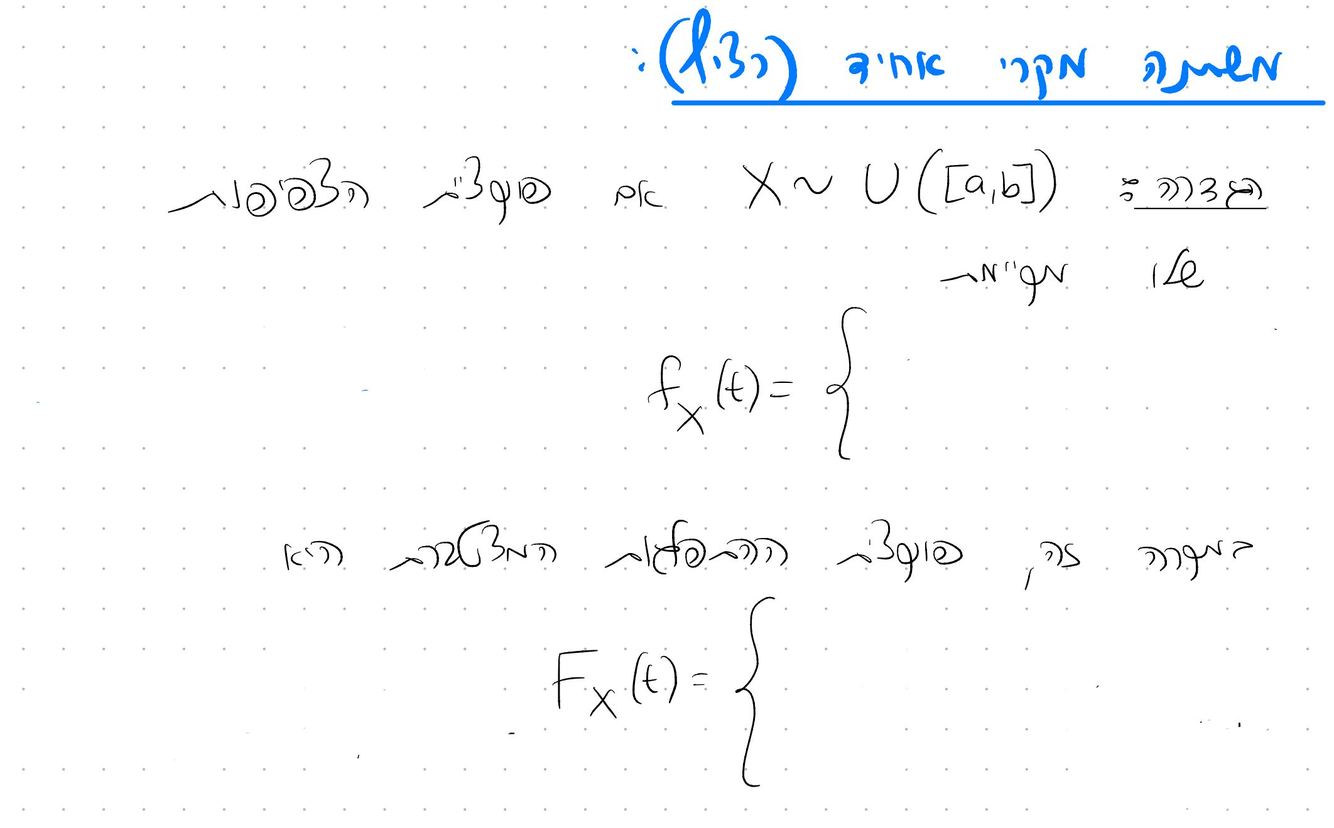 משתנה מקרי אחיד (רציף):
הגדרה: X ~ U([a,b]) אם פונקציית הצפיפות
שלו מקיימת
f_X(t) = {
במקרה זה, פונקציית ההתפלגות המצטברת היא
F_X(t) = {